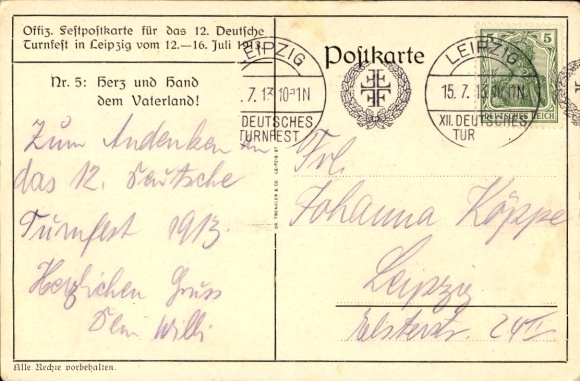 Offiz. Festpostkarte für das 12. Deutsche
Turnfest in Leipzig vom 12.—16. Juli 1913.
Nr. 5: Herz und Hand
dem Vaterland!
Zum Andenken an
das 12. Deutsche
Turnfest 1913.
Herzlichen Gruss
Dein Willi
Alle Rechte vorbehalten.
LEIPZIG
.7.13 10-11N
DEUTSCHES
TURNFEST
Postkarte
LEIPZIG
15.7.13 10-11N
XII. DEUTSCHES
TUR
5 5
DEUTSCHES REICH
Frl.
Johanna Köppe
Leipzig
Elsterstr. 24 II